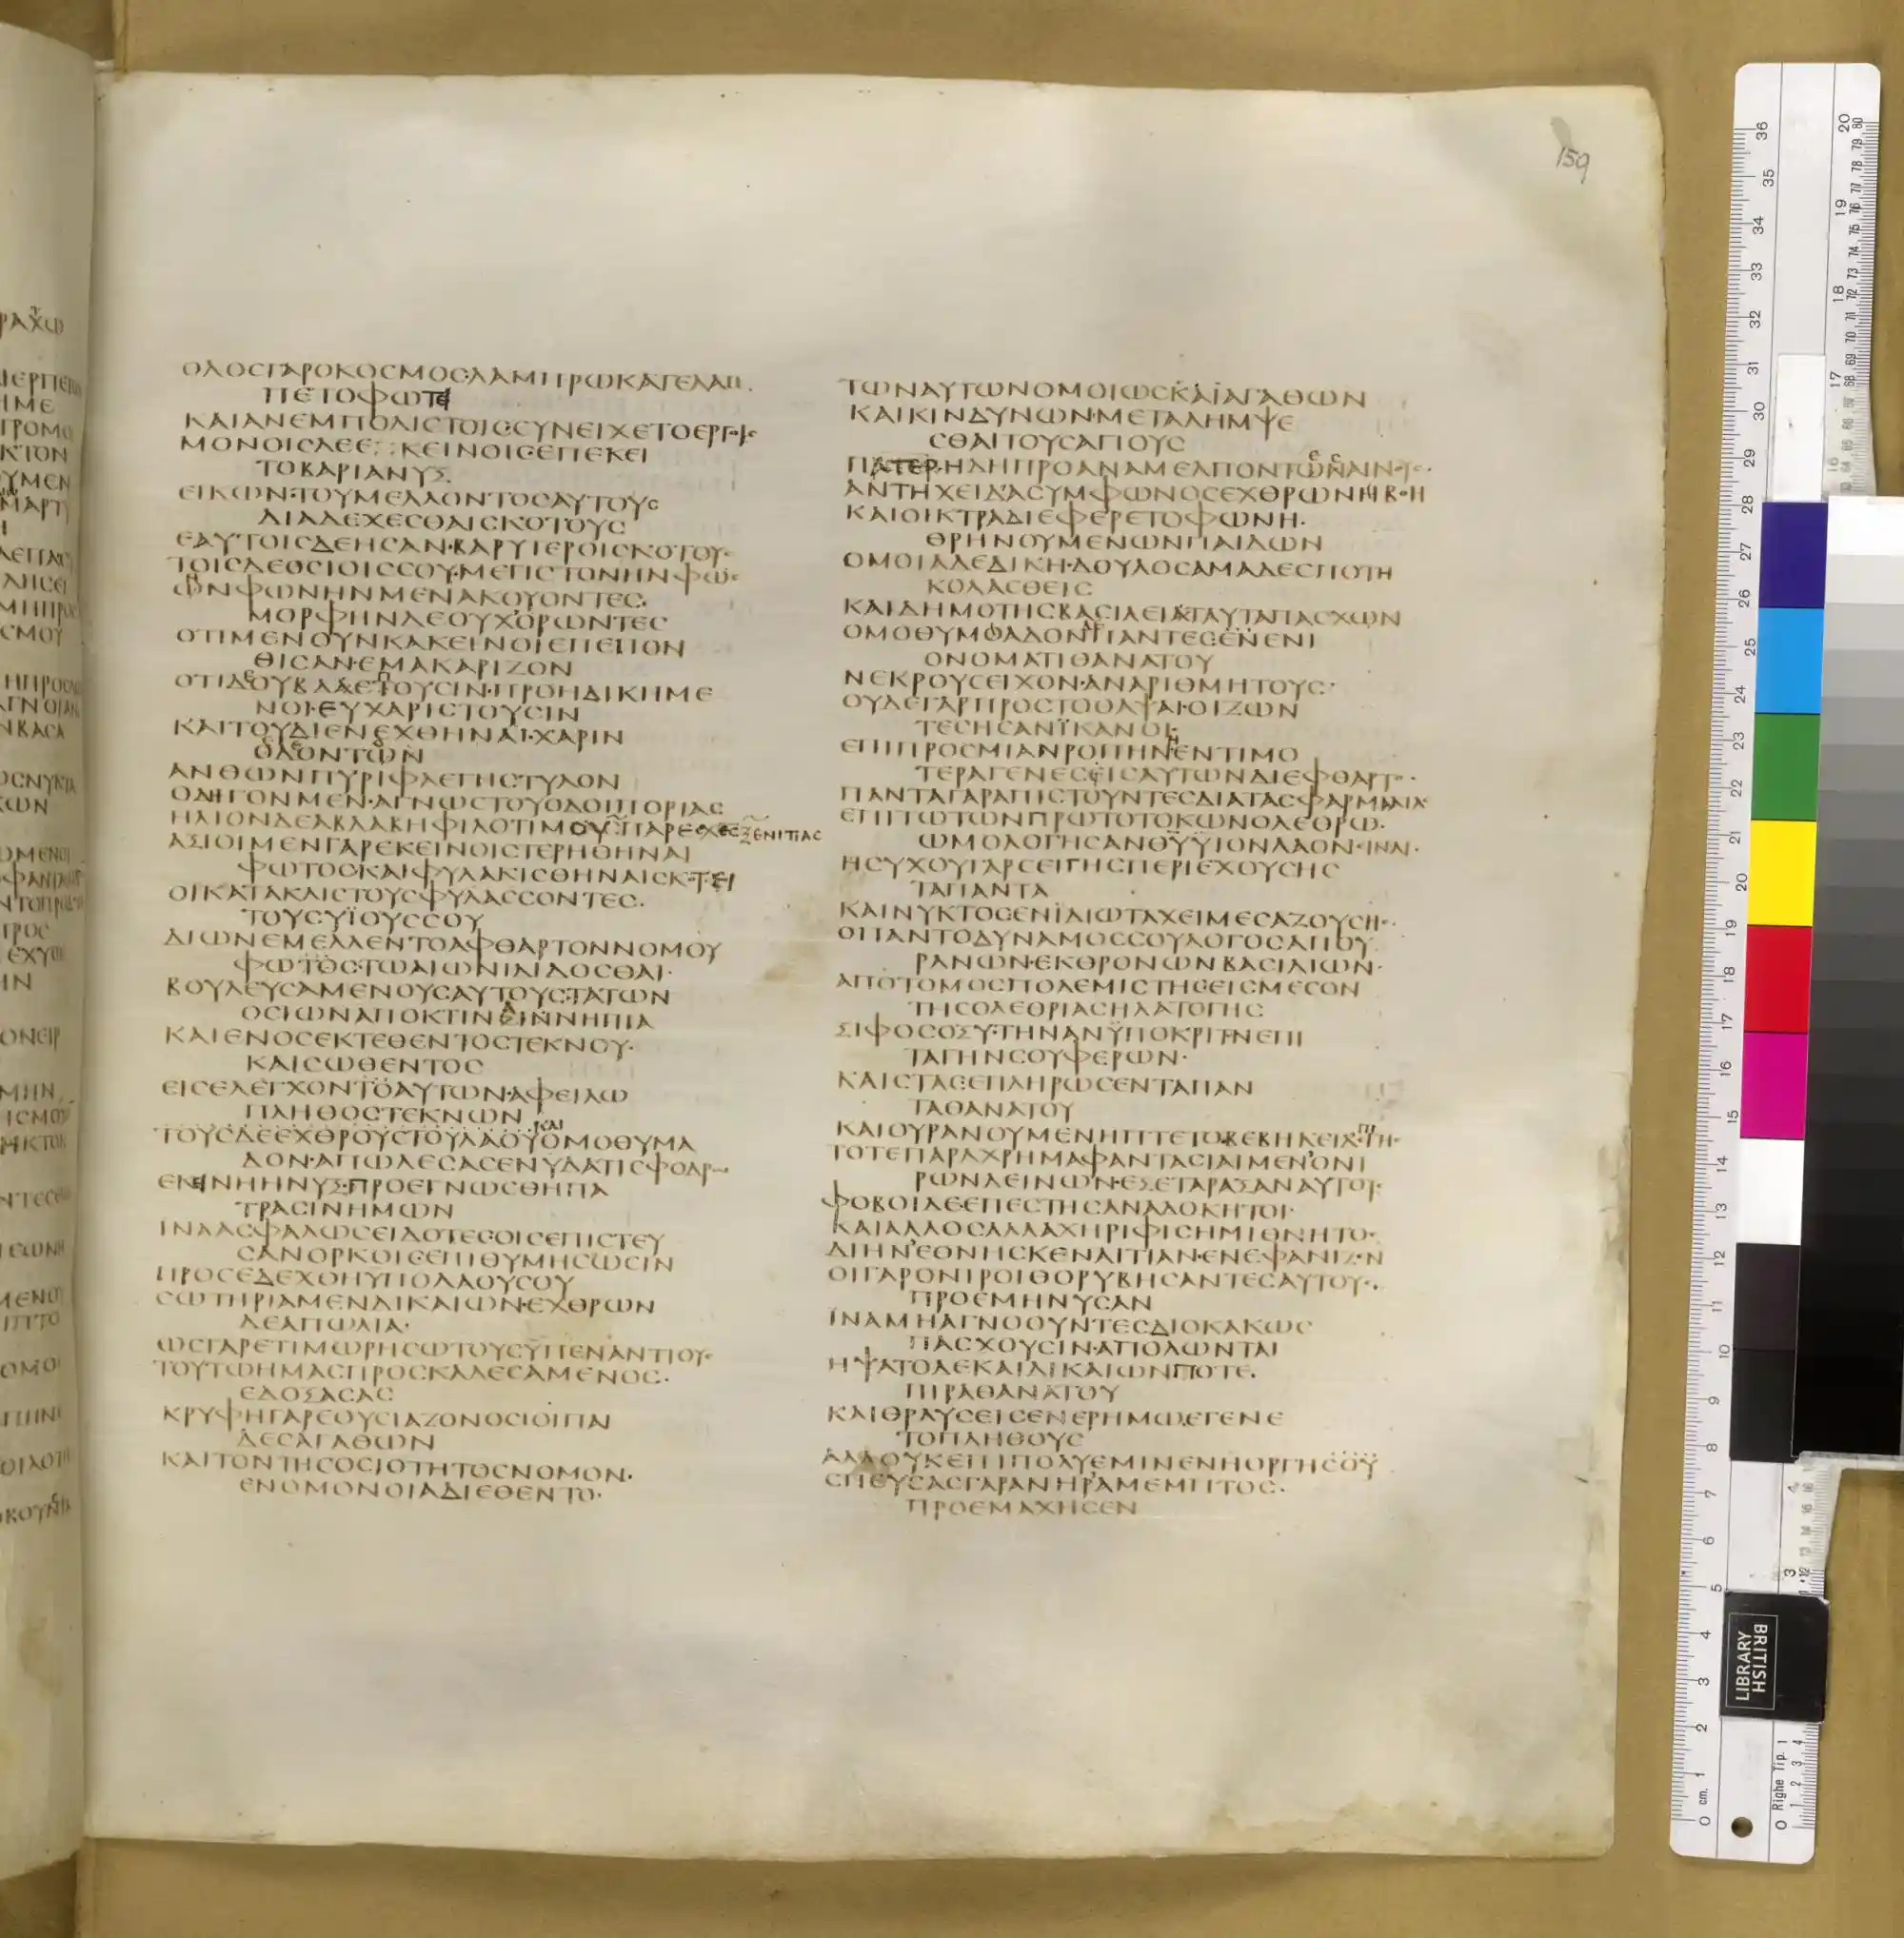 159
ΟΛΟСΓΑΡΟΚΟСΜΟСΛΑΜΠΡΩΚΑΤΕΛΑΠ
ΠΕΤΟΦΩΤΕΙ
ΚΑΙΑΝΕΜΠΟΔΙСΤΟΙССΥΝΕΙΧΕΤΟΕΡΓΟΙС
ΜΟΝΟΙСΔΕΕΚΕΙΝΟΙСΕΠΕΚΕΙ
ΤΟΒΑΡΙΑΝΥΞ
ΕΙΚΩΝΤΟΥΜΕΛΛΟΝΤΟСΑΥΤΟΥС
ΔΙΑΔΕΧΕСΘΑΙСΚΟΤΟΥС
ΕΑΥΤΟΙСΔΕΗСΑΝΒΑΡΥΤΕΡΟΙСΚΟΤΟΥС
ΤΟΙСΔΕΟСΙΟΙССΟΥΜΕΓΙСΤΟΝΗΝΦΩС
ΩΝΦΩΝΗΝΜΕΝΑΚΟΥΟΝΤΕС
ΜΟΡΦΗΝΔΕΟΥΧΟΡΩΝΤΕС
ΟΤΙΜΕΝΟΥΝΚΑΚΕΙΝΟΙΕΠΕΠΟΝ
ΘΙСΑΝΕΜΑΚΑΡΙΖΟΝ
ΟΤΙΔΟΥΒΛΑΠΤΟΥСΙΝΠΡΟΗΔΙΚΗΜΕ
ΝΟΙΕΥΧΑΡΙСΤΟΥСΙΝ
ΚΑΙΤΟΥΔΙΕΝΕΧΘΗΝΑΙΧΑΡΙΝ
ΕΔΕΟΝΤΟ
ΑΝΘΩΝΠΥΡΙΦΛΕΓΗСΤΥΛΟΝ
ΟΔΗΓΟΝΜΕΝΑΓΝΩСΤΟΥΟΔΟΙΠΟΡΙΑС
ΗΛΙΟΝΔΕΑΒΛΑΒΗΦΙΛΟΤΙΜΟΥΠΑΡΕСΧΕСΞΕΝΙΤΙΑС
ΑΞΙΟΙΜΕΝΓΑΡΕΚΕΙΝΟΙСΤΕΡΗΘΗΝΑΙ
ΦΩΤΟСΚΑΙΦΥΛΑΚΙСΘΗΝΑΙСΚΟΤΕΙ
ΟΙΚΑΤΑΚΛΙСΤΟΥСΦΥΛΑССΟΝΤΕС
ΤΟΥСΥΪΟΥССΟΥ
ΔΙΩΝΕΜΕΛΛΕΝΤΟΑΦΘΑΡΤΟΝΝΟΜΟΥ
ΦΩΤΟСΤΩΑΙΩΝΙΔΙΔΟСΘΑΙ
ΒΟΥΛΕΥСΑΜΕΝΟΥСΑΥΤΟΥСΤΑΤΩΝ
ΟСΙΩΝΑΠΟΚΤΙΝΕΙΝΝΗΠΙΑ
ΚΑΙΕΝΟСΕΚΤΕΘΕΝΤΟСΤΕΚΝΟΥ
ΚΑΙСΩΘΕΝΤΟС
ΕΙСΕΛΕΓΧΟΝΤΟΑΥΤΩΝΑΦΕΙΛΩ
ΠΛΗΘΟСΤΕΚΝΩΝ
ΤΟΥСΔΕΕΧΘΡΟΥСΤΟΥΛΑΟΥΟΜΟΘΥΜΑ
ΔΟΝΑΠΩΛΕСΑСΕΝΥΔΑΤΙСΦΟΔΡΩ
ΕΚΙΝΗΗΝΥΞΠΡΟΕΓΝΩСΘΗΠΑ
ΤΡΑСΙΝΗΜΩΝ
ΙΝΑΑСΦΑΛΩСΕΙΔΟΤΕСΟΙСΕΠΙСΤΕΥ
СΑΝΟΡΚΟΙСΕΠΙΘΥΜΗСΩСΙΝ
ΠΡΟСΕΔΕΧΘΗΥΠΟΛΑΟΥСΟΥ
СΩΤΗΡΙΑΜΕΝΔΙΚΑΙΩΝΕΧΘΡΩΝ
ΔΕΑΠΩΛΙΑ
ΩСΓΑΡΕΤΙΜΩΡΗСΩΤΟΥСΥΠΕΝΑΝΤΙΟΥС
ΤΟΥΤΩΗΜΑСΠΡΟСΚΑΛΕСΑΜΕΝΟС
ΕΔΟΞΑСΑС
ΚΡΥΦΗΓΑΡΕΘΥСΙΑΖΟΝΟСΙΟΙΠΑΙ
ΔΕСΑΓΑΘΩΝ
ΚΑΙΤΟΝΤΗСΟСΙΟΤΗΤΟСΝΟΜΟΝ
ΕΝΟΜΟΝΟΙΑΔΙΕΘΕΝΤΟ
ΤΩΝΑΥΤΩΝΟΜΟΙΩСΚΑΙΑΓΑΘΩΝ
ΚΑΙΚΙΝΔΥΝΩΝΜΕΤΑΛΗΜΨΕ
СΘΑΙΤΟΥСΑΓΙΟΥС
ΠΑΤΕΡΗΔΗΠΡΟΑΝΑΜΕΛΠΟΝΤΩΝΑΙΝΟΥС
ΑΝΤΗΧΕΙΔΑСΥΜΦΩΝΟСΕΧΘΡΩΝΗΒΟΗ
ΚΑΙΟΙΚΤΡΑΔΙΕΦΕΡΕΤΟΦΩΝΗ
ΘΡΗΝΟΥΜΕΝΩΝΠΑΙΔΩΝ
ΟΜΟΙΑΔΕΔΙΚΗΔΟΥΛΟСΑΜΑΔΕСΠΟΤΗ
ΚΟΛΑСΘΕΙС
ΚΑΙΔΗΜΟΤΗСΒΑСΙΛΕΙΤΑΥΤΑΠΑСΧΩΝ
ΟΜΟΘΥΜΑΔΟΝΔΕΠΑΝΤΕСΕΝΕΝΙ
ΟΝΟΜΑΤΙΘΑΝΑΤΟΥ
ΝΕΚΡΟΥСΕΙΧΟΝΑΝΑΡΙΘΜΗΤΟΥС
ΟΥΔΕΓΑΡΠΡΟСΤΟΘΑΨΑΙΟΙΖΩΝ
ΤΕСΗСΑΝΪΚΑΝΟΙ
ΕΠΙΠΡΟСΜΙΑΝΡΟΠΗΝΗΕΝΤΙΜΟ
ΤΕΡΑΓΕΝΕСΕΙСΑΥΤΩΝΔΙΕΦΘΑΡΤΟ
ΠΑΝΤΑΓΑΡΑΠΙСΤΟΥΝΤΕСΔΙΑΤΑСΦΑΡΜΑΚΙΑС
ΕΠΙΤΩΤΩΝΠΡΩΤΟΤΟΚΩΝΟΛΕΘΡΩ
ΩΜΟΛΟΓΗСΑΝΘΥΥΙΟΝΛΑΟΝΕΙΝΑΙ
ΗСΥΧΟΥΓΑΡСΕΙΓΗСΠΕΡΙΕΧΟΥСΗС
ΤΑΠΑΝΤΑ
ΚΑΙΝΥΚΤΟСΕΝΙΔΙΩΤΑΧΕΙΜΕСΑΖΟΥСΗС
ΟΠΑΝΤΟΔΥΝΑΜΟССΟΥΛΟΓΟСΑΠΟΥ
ΡΑΝΩΝΕΚΘΡΟΝΩΝΒΑСΙΛΙΩΝ
ΑΠΟΤΟΜΟСΠΟΛΕΜΙСΤΗСΕΙСΜΕСΟΝ
ΤΗСΟΛΕΘΡΙΑСΗΛΑΤΟΓΗС
ΞΙΦΟСΟΞΥΤΗΝΑΝΥΠΟΚΡΙΤΟΝΕΠΙ
ΤΑΓΗΝСΟΥΦΕΡΩΝ
ΚΑΙСΤΑСΕΠΛΗΡΩСΕΝΤΑΠΑΝ
ΤΑΘΑΝΑΤΟΥ
ΚΑΙΟΥΡΑΝΟΥΜΕΝΗΠΤΕΤΟΒΕΒΗΚΕΙΔΕΠΙΓΗС
ΤΟΤΕΠΑΡΑΧΡΗΜΑΦΑΝΤΑСΙΑΙΜΕΝΟΝΙ
ΡΩΝΔΕΙΝΩΝΕΞΕΤΑΡΑΞΑΝΑΥΤΟΥС
ΦΟΒΟΙΔΕΕΠΕСΤΗСΑΝΑΔΟΚΗΤΟΙ
ΚΑΙΑΛΛΟСΑΛΛΑΧΗΡΙΦΙСΗΜΙΘΝΗΤΟС
ΔΙΗΝΕΘΝΗСΚΕΝΑΙΤΙΑΝΕΝΕΦΑΝΙΖΟΝ
ΟΙΓΑΡΟΝΙΡΟΙΘΟΡΥΒΗСΑΝΤΕСΑΥΤΟΥС
ΠΡΟΕΜΗΝΥСΑΝ
ΪΝΑΜΗΑΓΝΟΟΥΝΤΕСΔΙΟΚΑΚΩС
ΠΑСΧΟΥСΙΝΑΠΟΛΩΝΤΑΙ
ΗΨΑΤΟΔΕΚΑΙΔΙΚΑΙΩΝΠΟΤΕ
ΠΙΡΑΘΑΝΑΤΟΥ
ΚΑΙΘΡΑΥСΕΙСΕΝΕΡΗΜΩΕΓΕΝΕ
ΤΟΠΛΗΘΟΥС
ΑΛΛΟΥΚΕΠΙΠΟΛΥΕΜΙΝΕΝΗΟΡΓΗСΟΥ
СΠΕΥСΑСΓΑΡΑΝΗΡΑΜΕΜΠΤΟС
ΠΡΟΕΜΑΧΗСΕΝ
BRITISH
LIBRARY